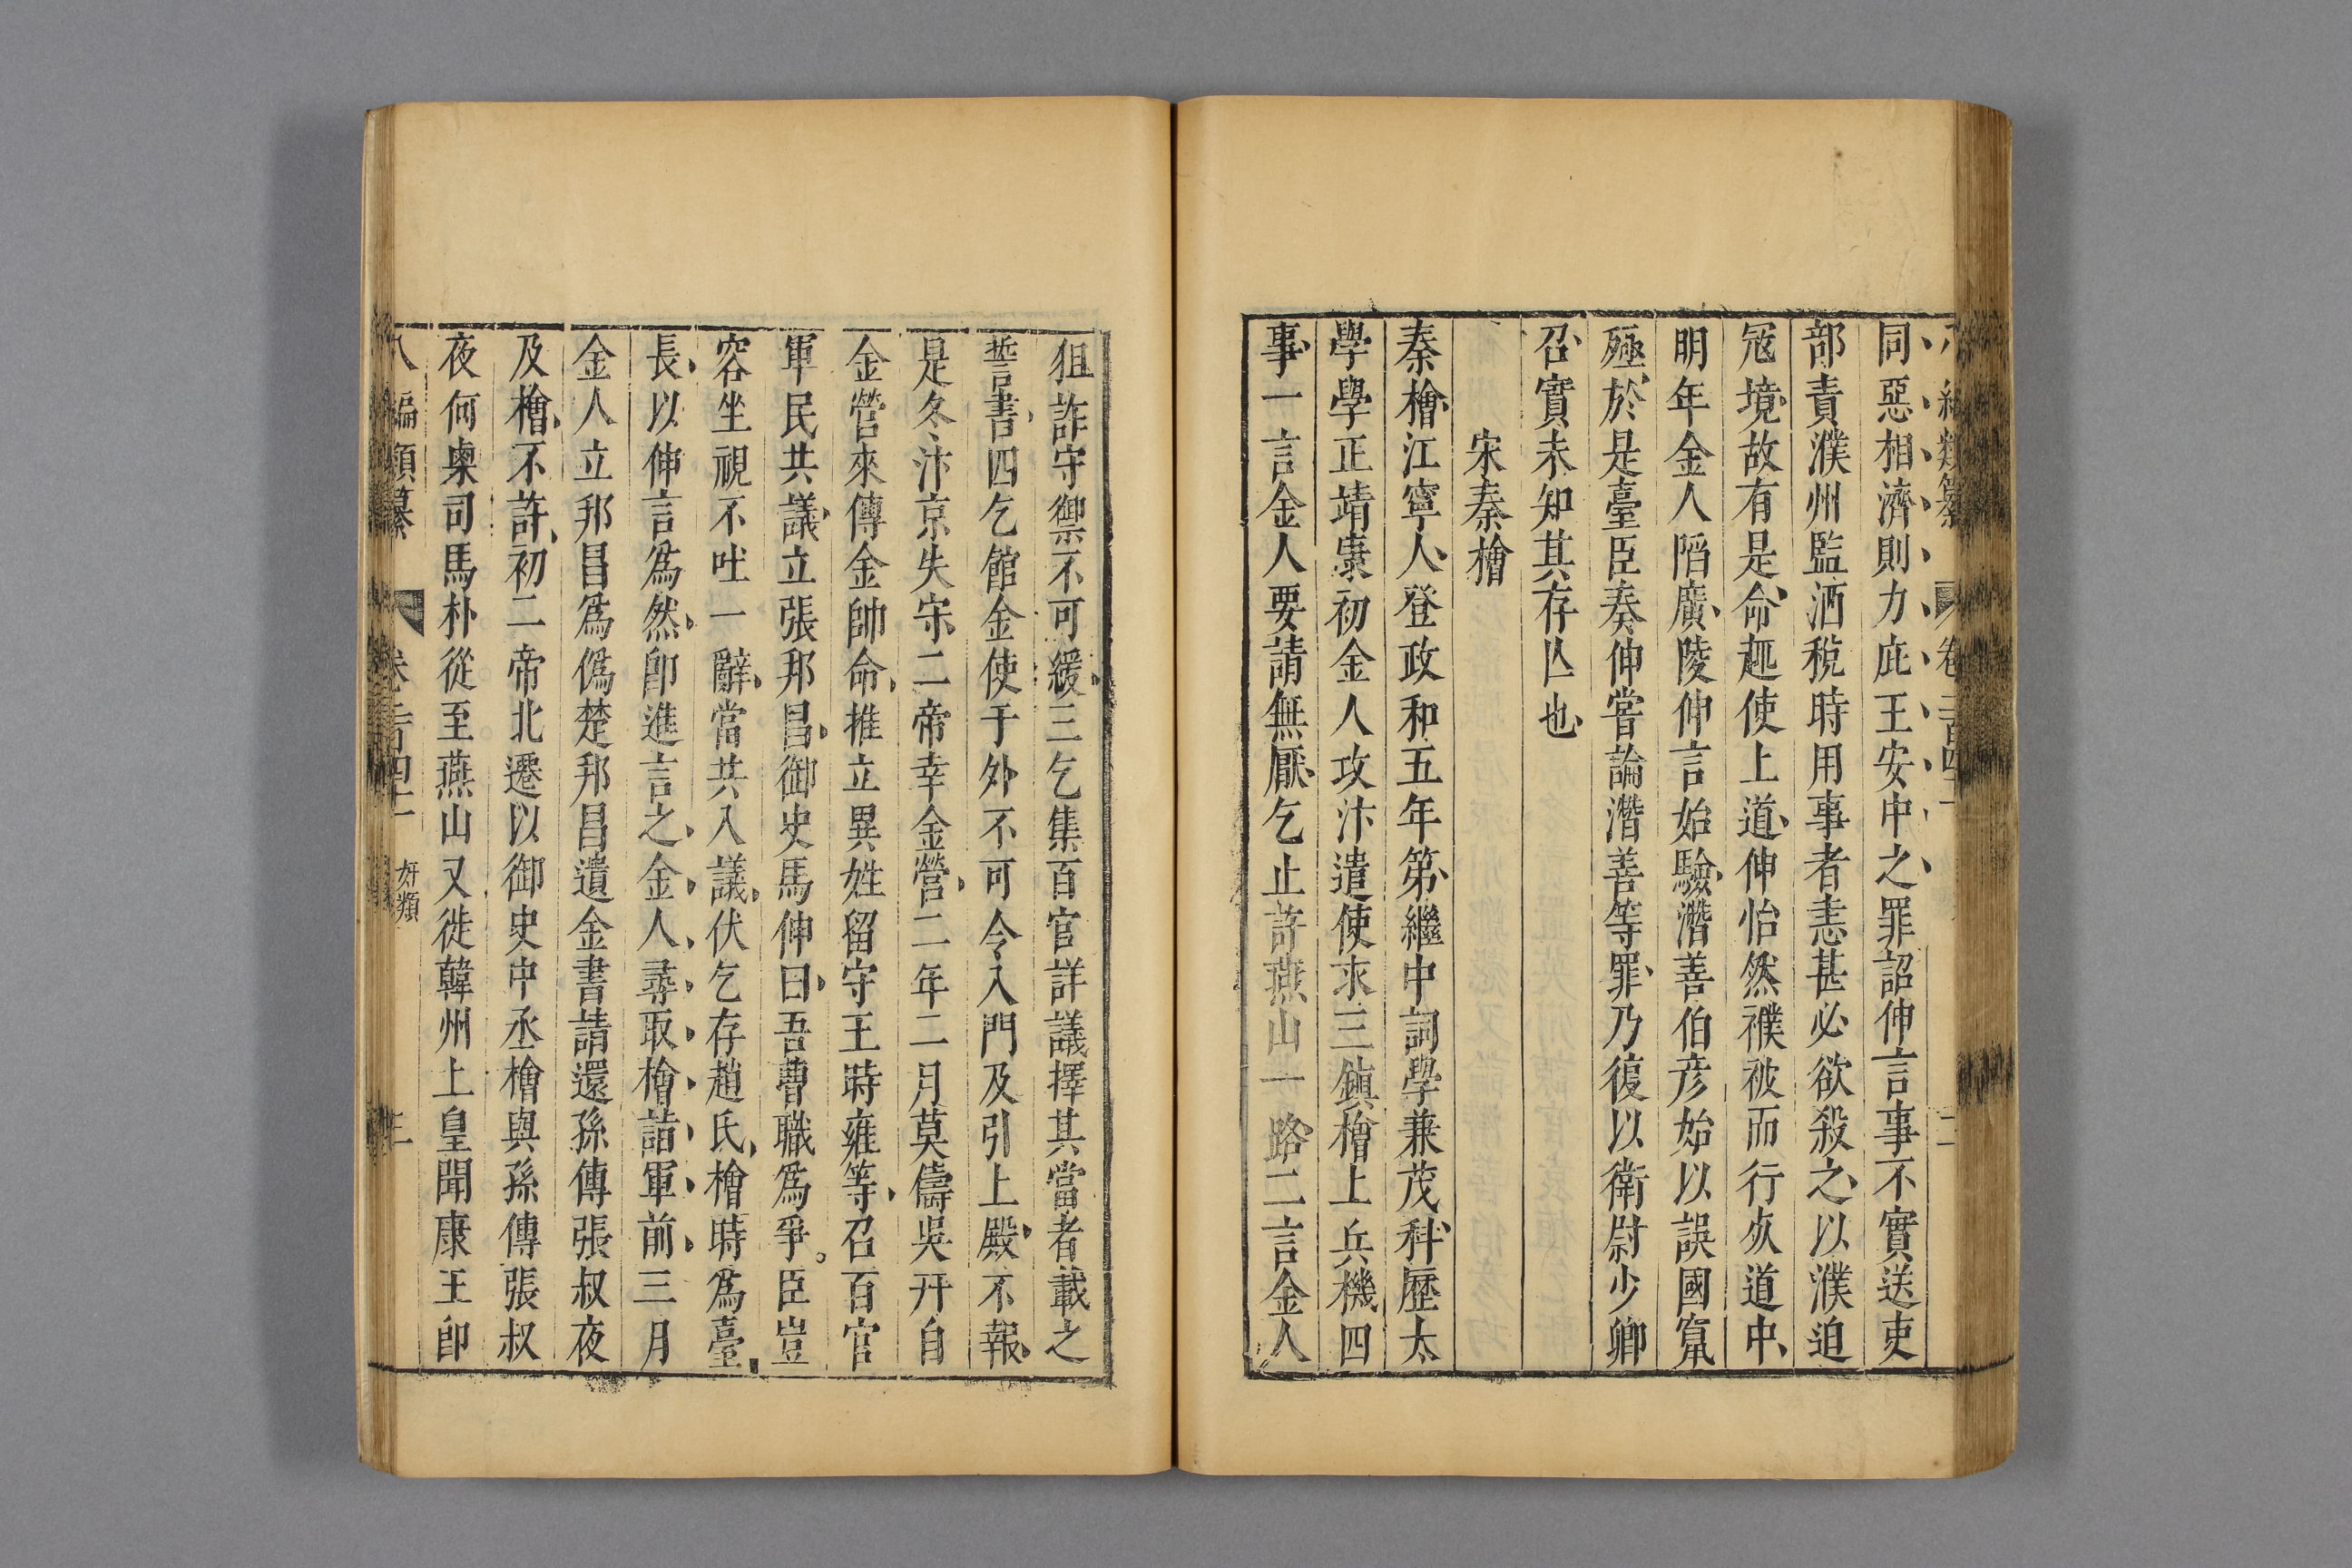 八編類纂 卷二百四十一 二
同惡相濟則力庇王安中之罪詔伸言事不實送吏
部責濮州監酒稅時用事者恚甚必欲殺之以濮迫
冦境故有是命趣使上道伸怡然襆被而行死道中
明年金人陷廣陵伸言始驗潛善伯彦始以誤國竄
殛於是臺臣奏伸嘗論潛善等罪乃復以衛尉少卿
召實未知其存亾也
宋秦檜
秦檜江寧人登政和五年第繼中詞學兼茂科歷太
學學正靖康初金人攻汴遣使求三鎮檜上兵機四
事一言金人要請無厭乞止許燕山一路二言金人
狙詐守禦不可緩三乞集百官詳議擇其當者載之
誓書四乞館金使于外不可令入門及引上殿不報
是冬汴京失守二帝幸金營二年二月莫儔吳幵自
金營來傳金帥命推立異姓留守王時雍等召百官
軍民共議立張邦昌御史馬伸曰吾曹職爲爭臣豈
容坐視不吐一辭當共入議狀乞存趙氏檜時爲臺
長以伸言爲然卽進言之金人尋取檜詣軍前三月
金人立邦昌爲僞楚邦昌遺金書請還孫傳張叔夜
及檜不許初二帝北遷以御史中丞檜與孫傳張叔
夜何㮚司馬朴從至燕山又徙韓州上皇聞康王卽
八編類纂 卷二百四十一 奸類 三